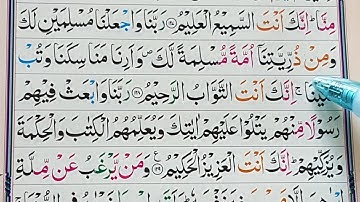 مِنَّا ؕ اِنَّكَ اَنْتَ السَّمِیْعُ الْعَلِیْمُ ﴿۱۲۷﴾ رَبَّنَا وَاجْعَلْنَا مُسْلِمَیْنِ لَكَ
وَمِنْ ذُرِّیَّتِنَاۤ اُمَّةً مُّسْلِمَةً لَّكَ ۪ وَاَرِنَا مَنَاسِكَنَا وَتُبْ
عَلَیْنَا ۚ اِنَّكَ اَنْتَ التَّوَّابُ الرَّحِیْمُ ﴿۱۲۸﴾ رَبَّنَا وَابْعَثْ فِیْهِمْ
رَسُوْلًا مِّنْهُمْ یَتْلُوْا عَلَیْهِمْ اٰیٰتِكَ وَیُعَلِّمُهُمُ الْكِتٰبَ وَالْحِكْمَةَ
وَیُزَكِّیْهِمْ ؕ اِنَّكَ اَنْتَ الْعَزِیْزُ الْحَكِیْمُ ﴿۱۲۹﴾ وَمَنْ یَّرْغَبُ عَنْ مِّلَّةِ